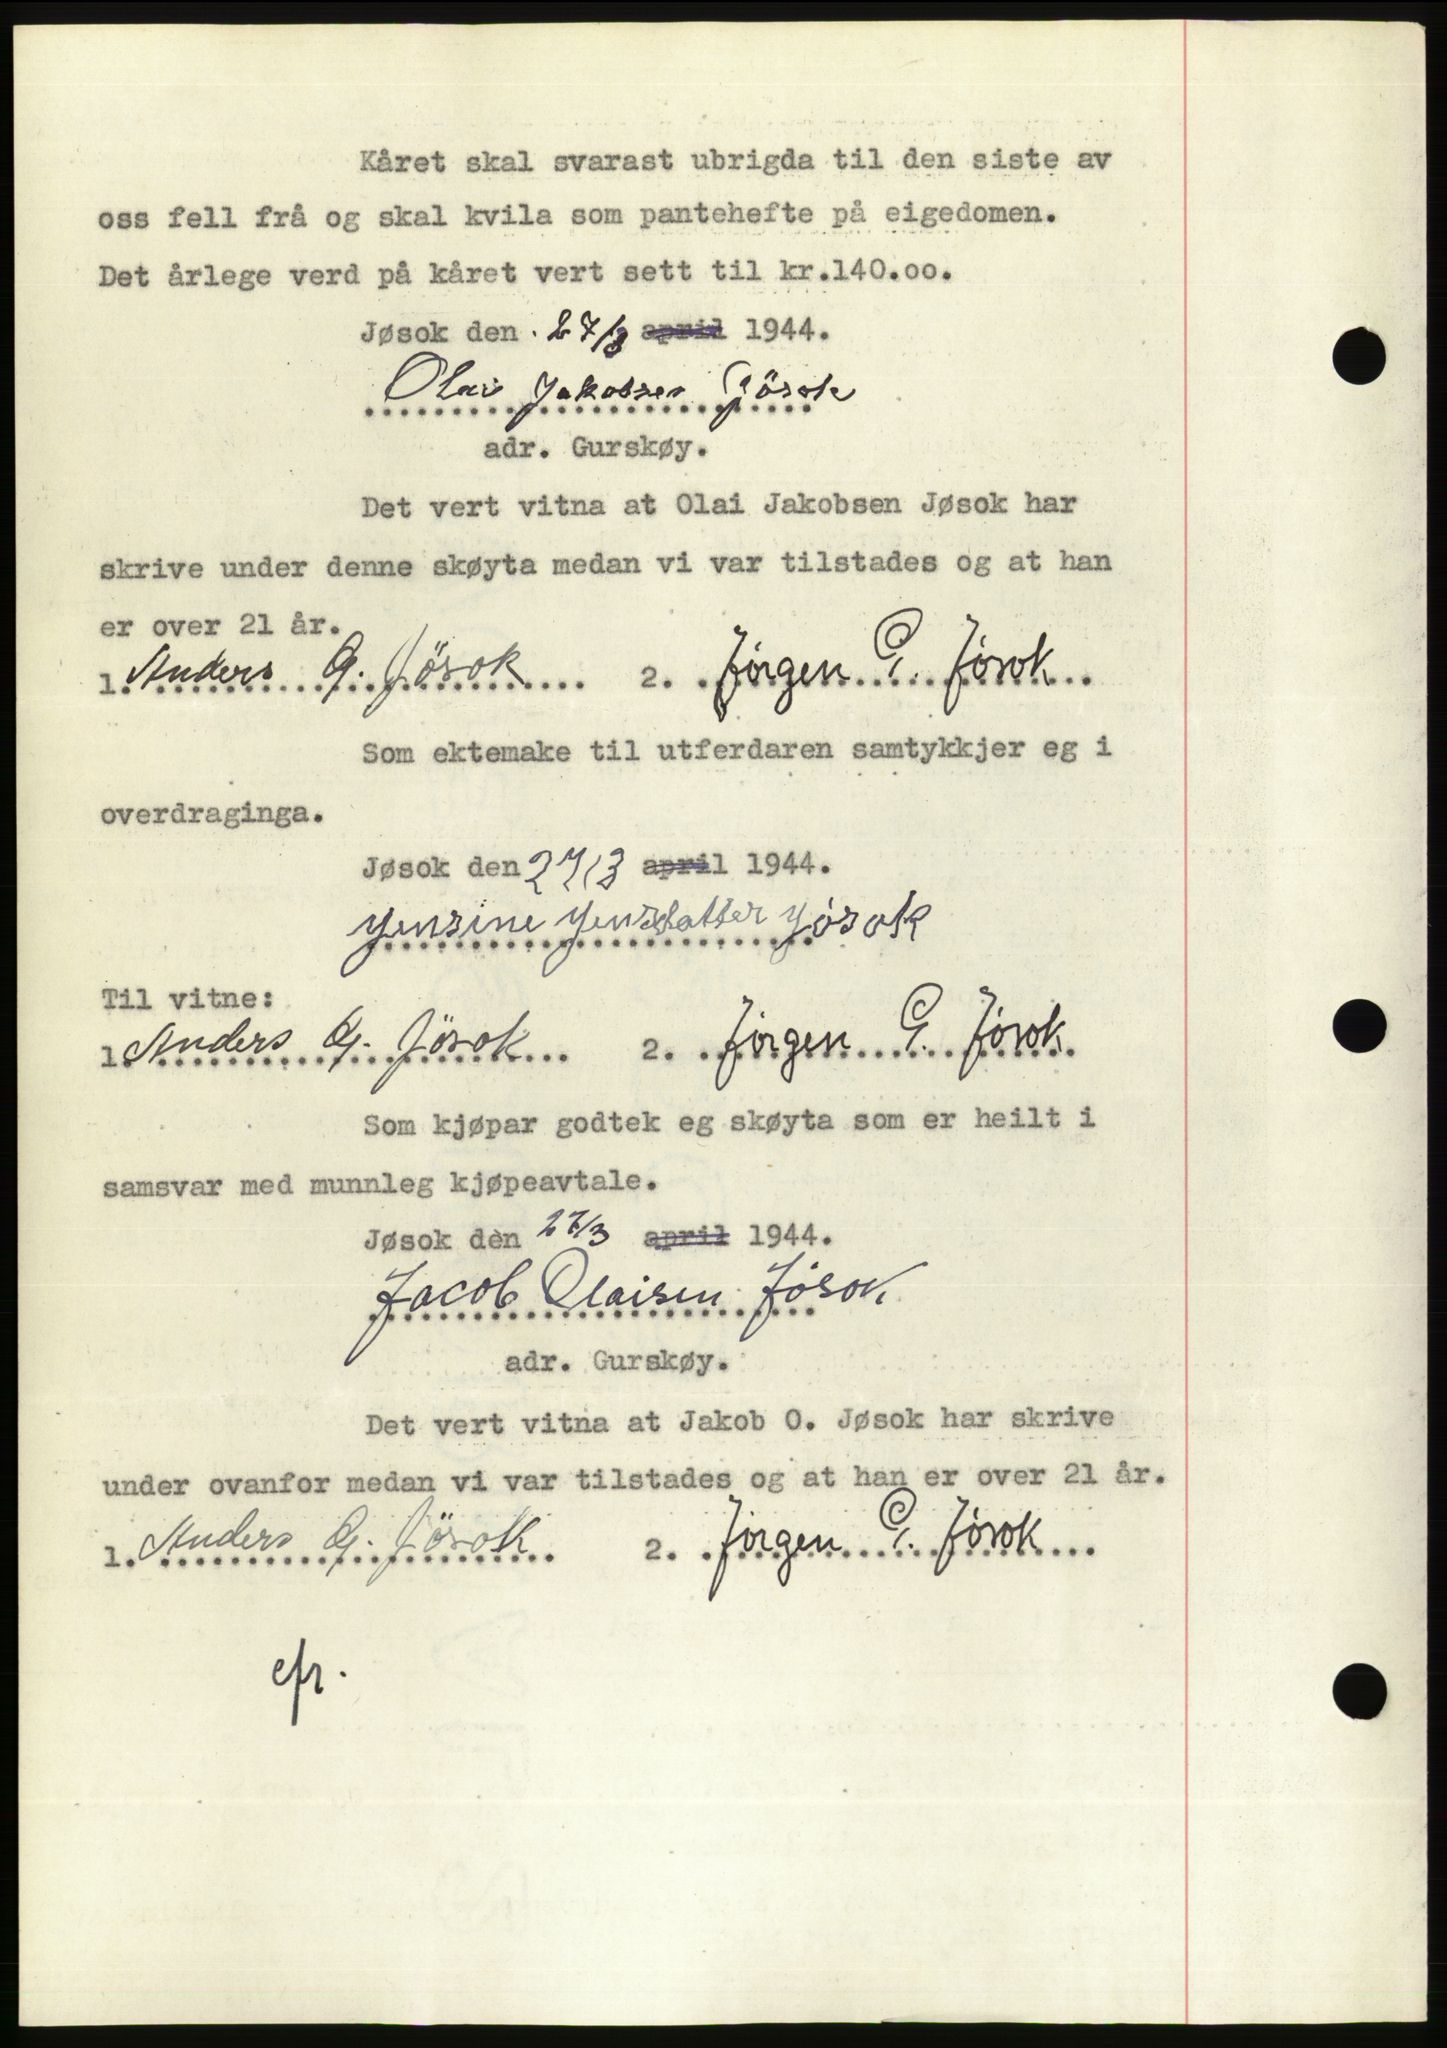 Kåret skal svarast ubrigda til den siste av
oss fell frå og skal kvila som pantehefte på eigedomen.
Det årlege verd på kåret vert sett til kr.140.oo.
Jøsok den 27/3 april 1944.
Olai Jakobsen Jösok
adr. Gurskøy.
Det vert vitna at Olai Jakobsen Jøsok har
skrive under denne skøyta medan vi var tilstades og at han
er over 21 år.
1. Anders G. Jösok 2. Jørgen G. Jøsok
Som ektemake til utferdaren samtykkjer eg i
overdraginga.
Jøsok den 27/3 april 1944.
Jensine Jensdatter Jøsok
Til vitne:
1. Anders G. Jösok 2. Jørgen G. Jøsok
Som kjøpar godtek eg skøyta som er heilt i
samsvar med munnleg kjøpeavtale.
Jøsok den 27/3 april 1944.
Jacob Olaisen Jøsok
adr. Gurskøy.
Det vert vitna at Jakob O. Jøsok har skrive
under ovanfor medan vi var tilstades og at han er over 21 år.
1. Anders G. Jösok 2. Jørgen G. Jøsok